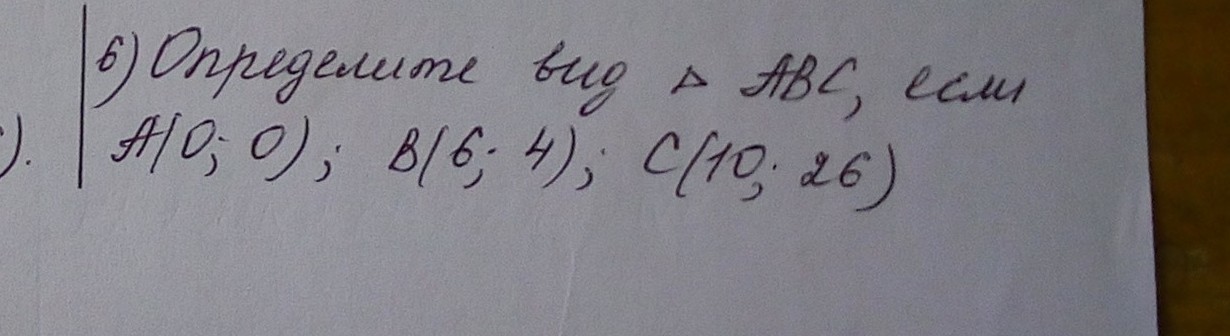 6) Определите вид △ ABC, если
). A(0; 0); B(6; 4); C(10; 26)